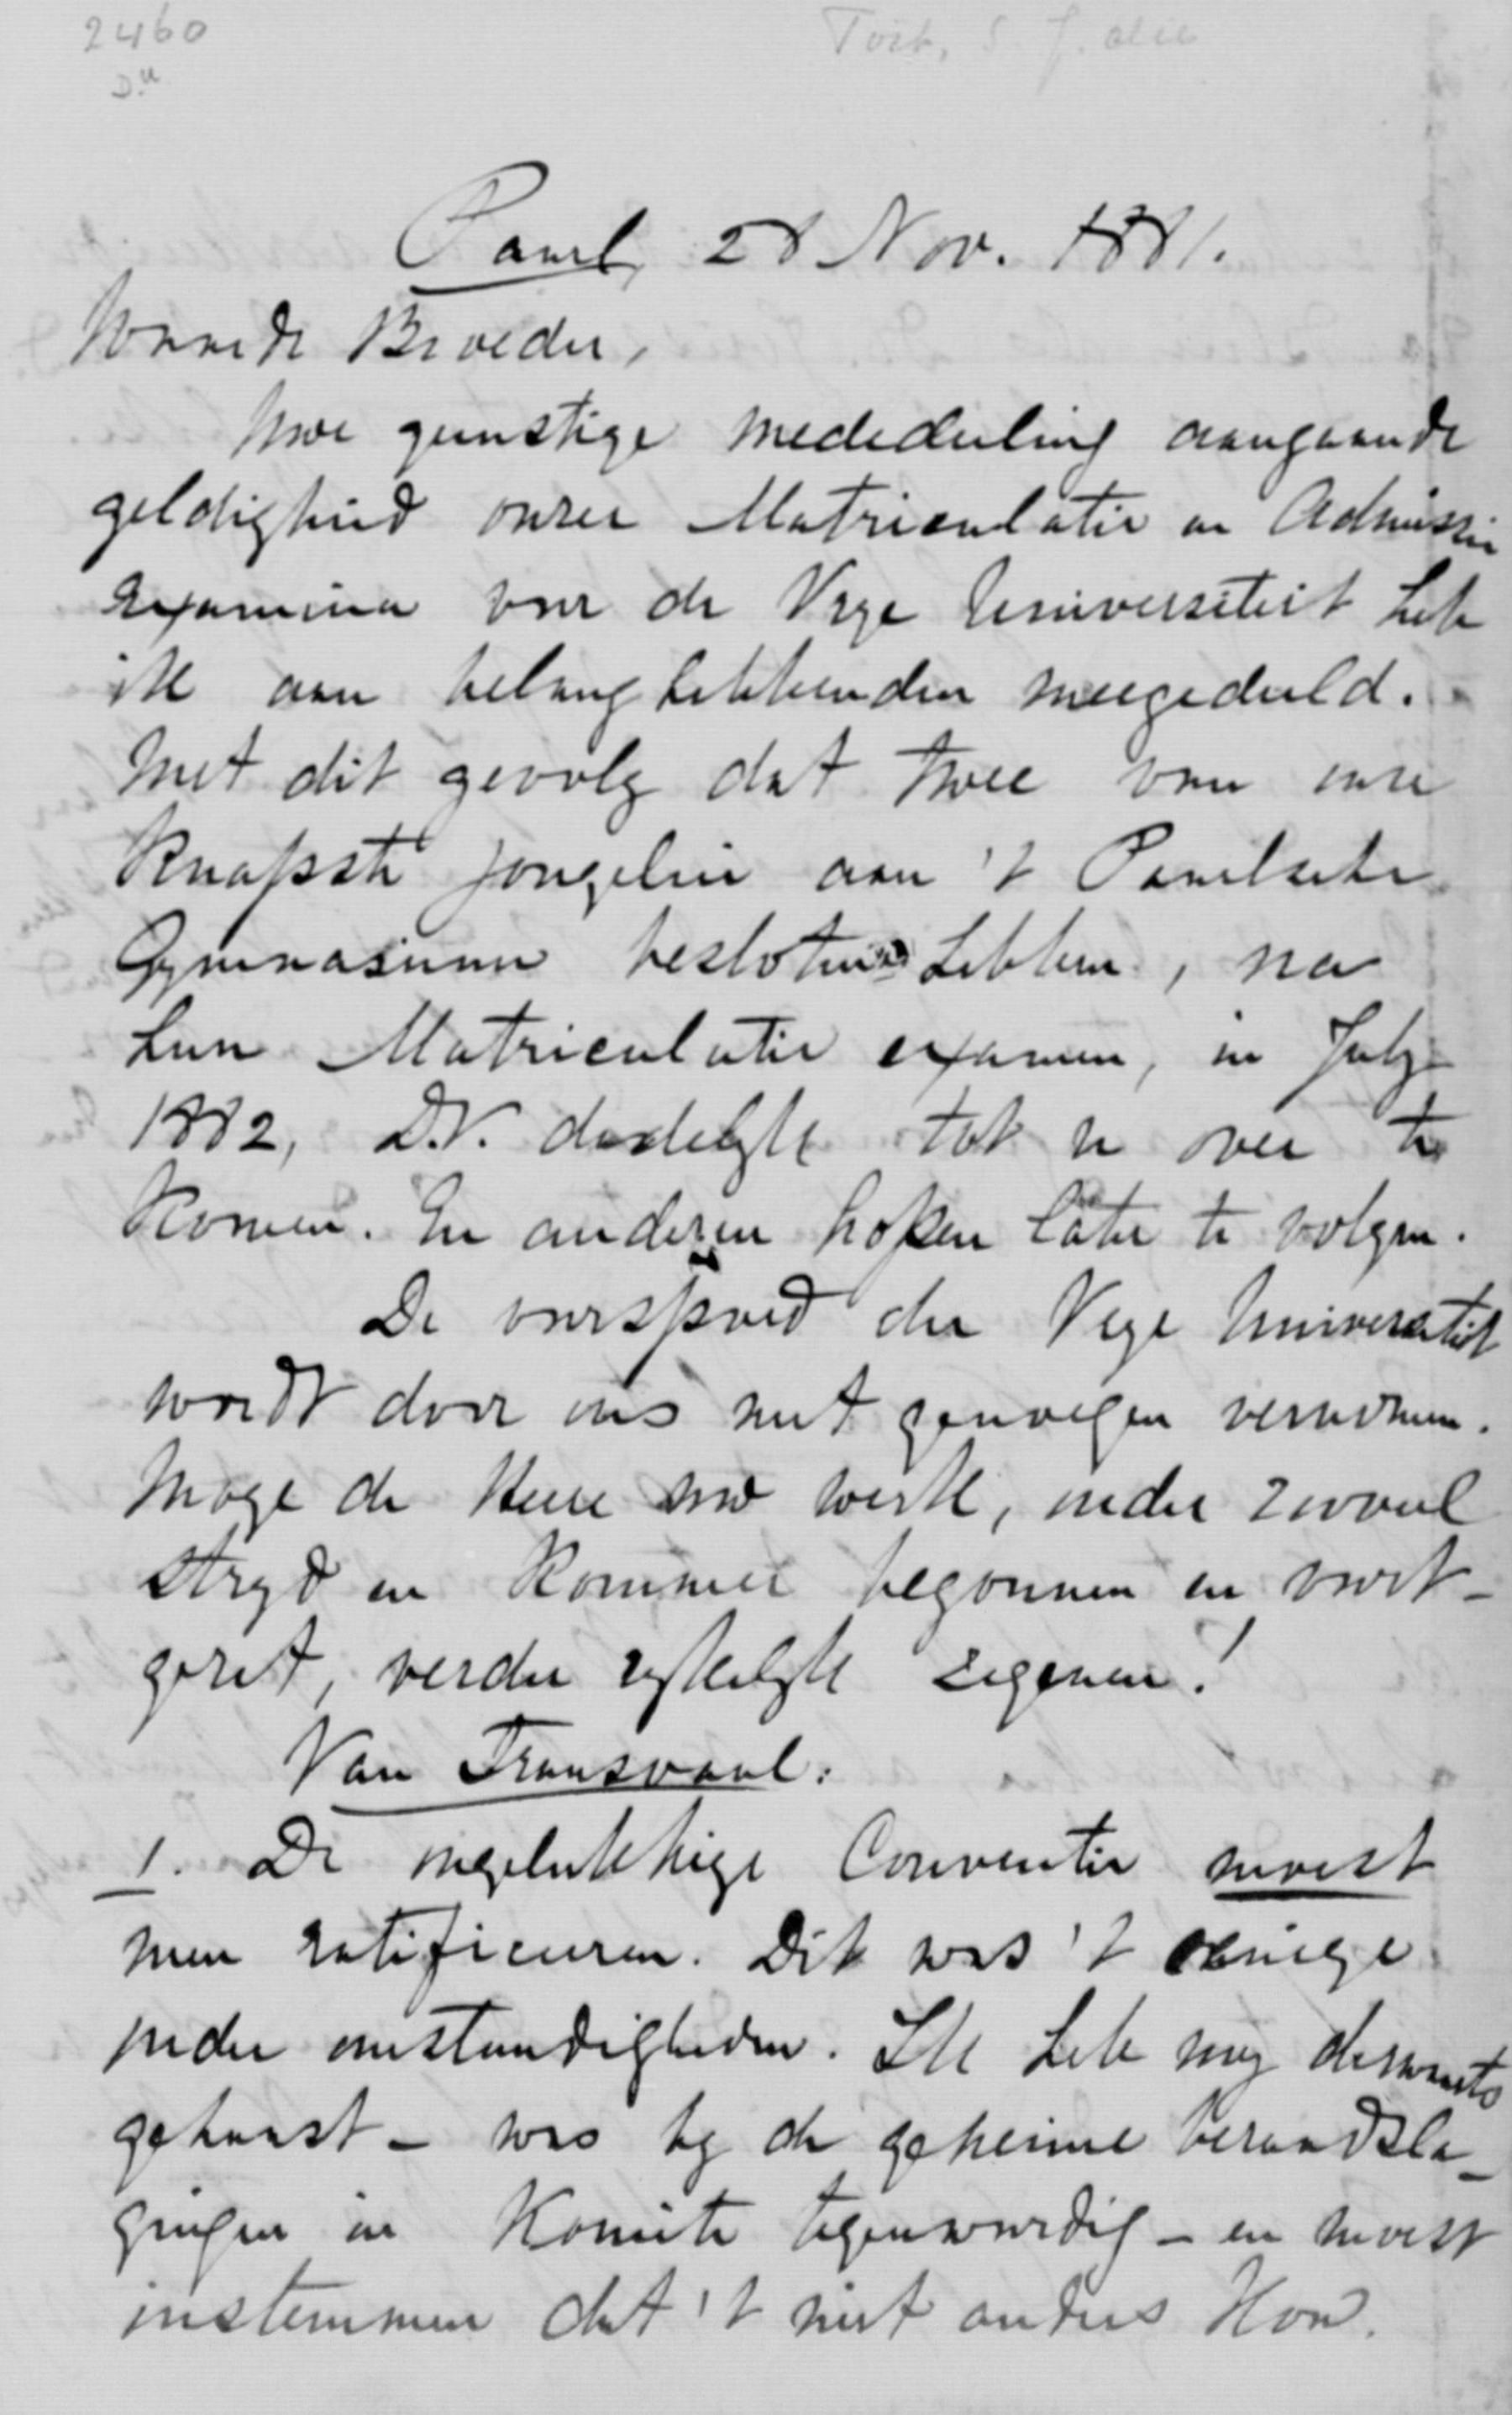 2460
Paarl, 28 Nov. 1881.
Waarde Broeder,
Uwe gunstige mededeeling aangaande
geldigheid onzer Matriculatie en Admissie
examina voor de Vrye Universiteit heb
ik aan belanghebbenden meegedeeld.
Met dit gevolg dat twee van onze
knapste jongelui aan 't Paarlsche
Gymnasium besloten hebben, na
hun Matriculatie examen, in July
1882, D.V. dadelyk tot u over te
komen. En anderen hopen later te volgen.
De voorspoed der Vrye Universiteit
wordt door ons met genoegen vernomen.
Moge de Heere uw werk, onder zooveel
stryd en kommer begonnen en voort-
gezet, verder rykelyk zegenen!
Van Transvaal:
1. De ongelukkige Conventie moest
men ratificeeren. Dit was 't eenige
onder omstandigheden. Ik heb my derwaarts
gehaast - was by de geheime beraadsla-
gingen in Komite tegenwoordig - en moest
instemmen dat 't niet anders kon.